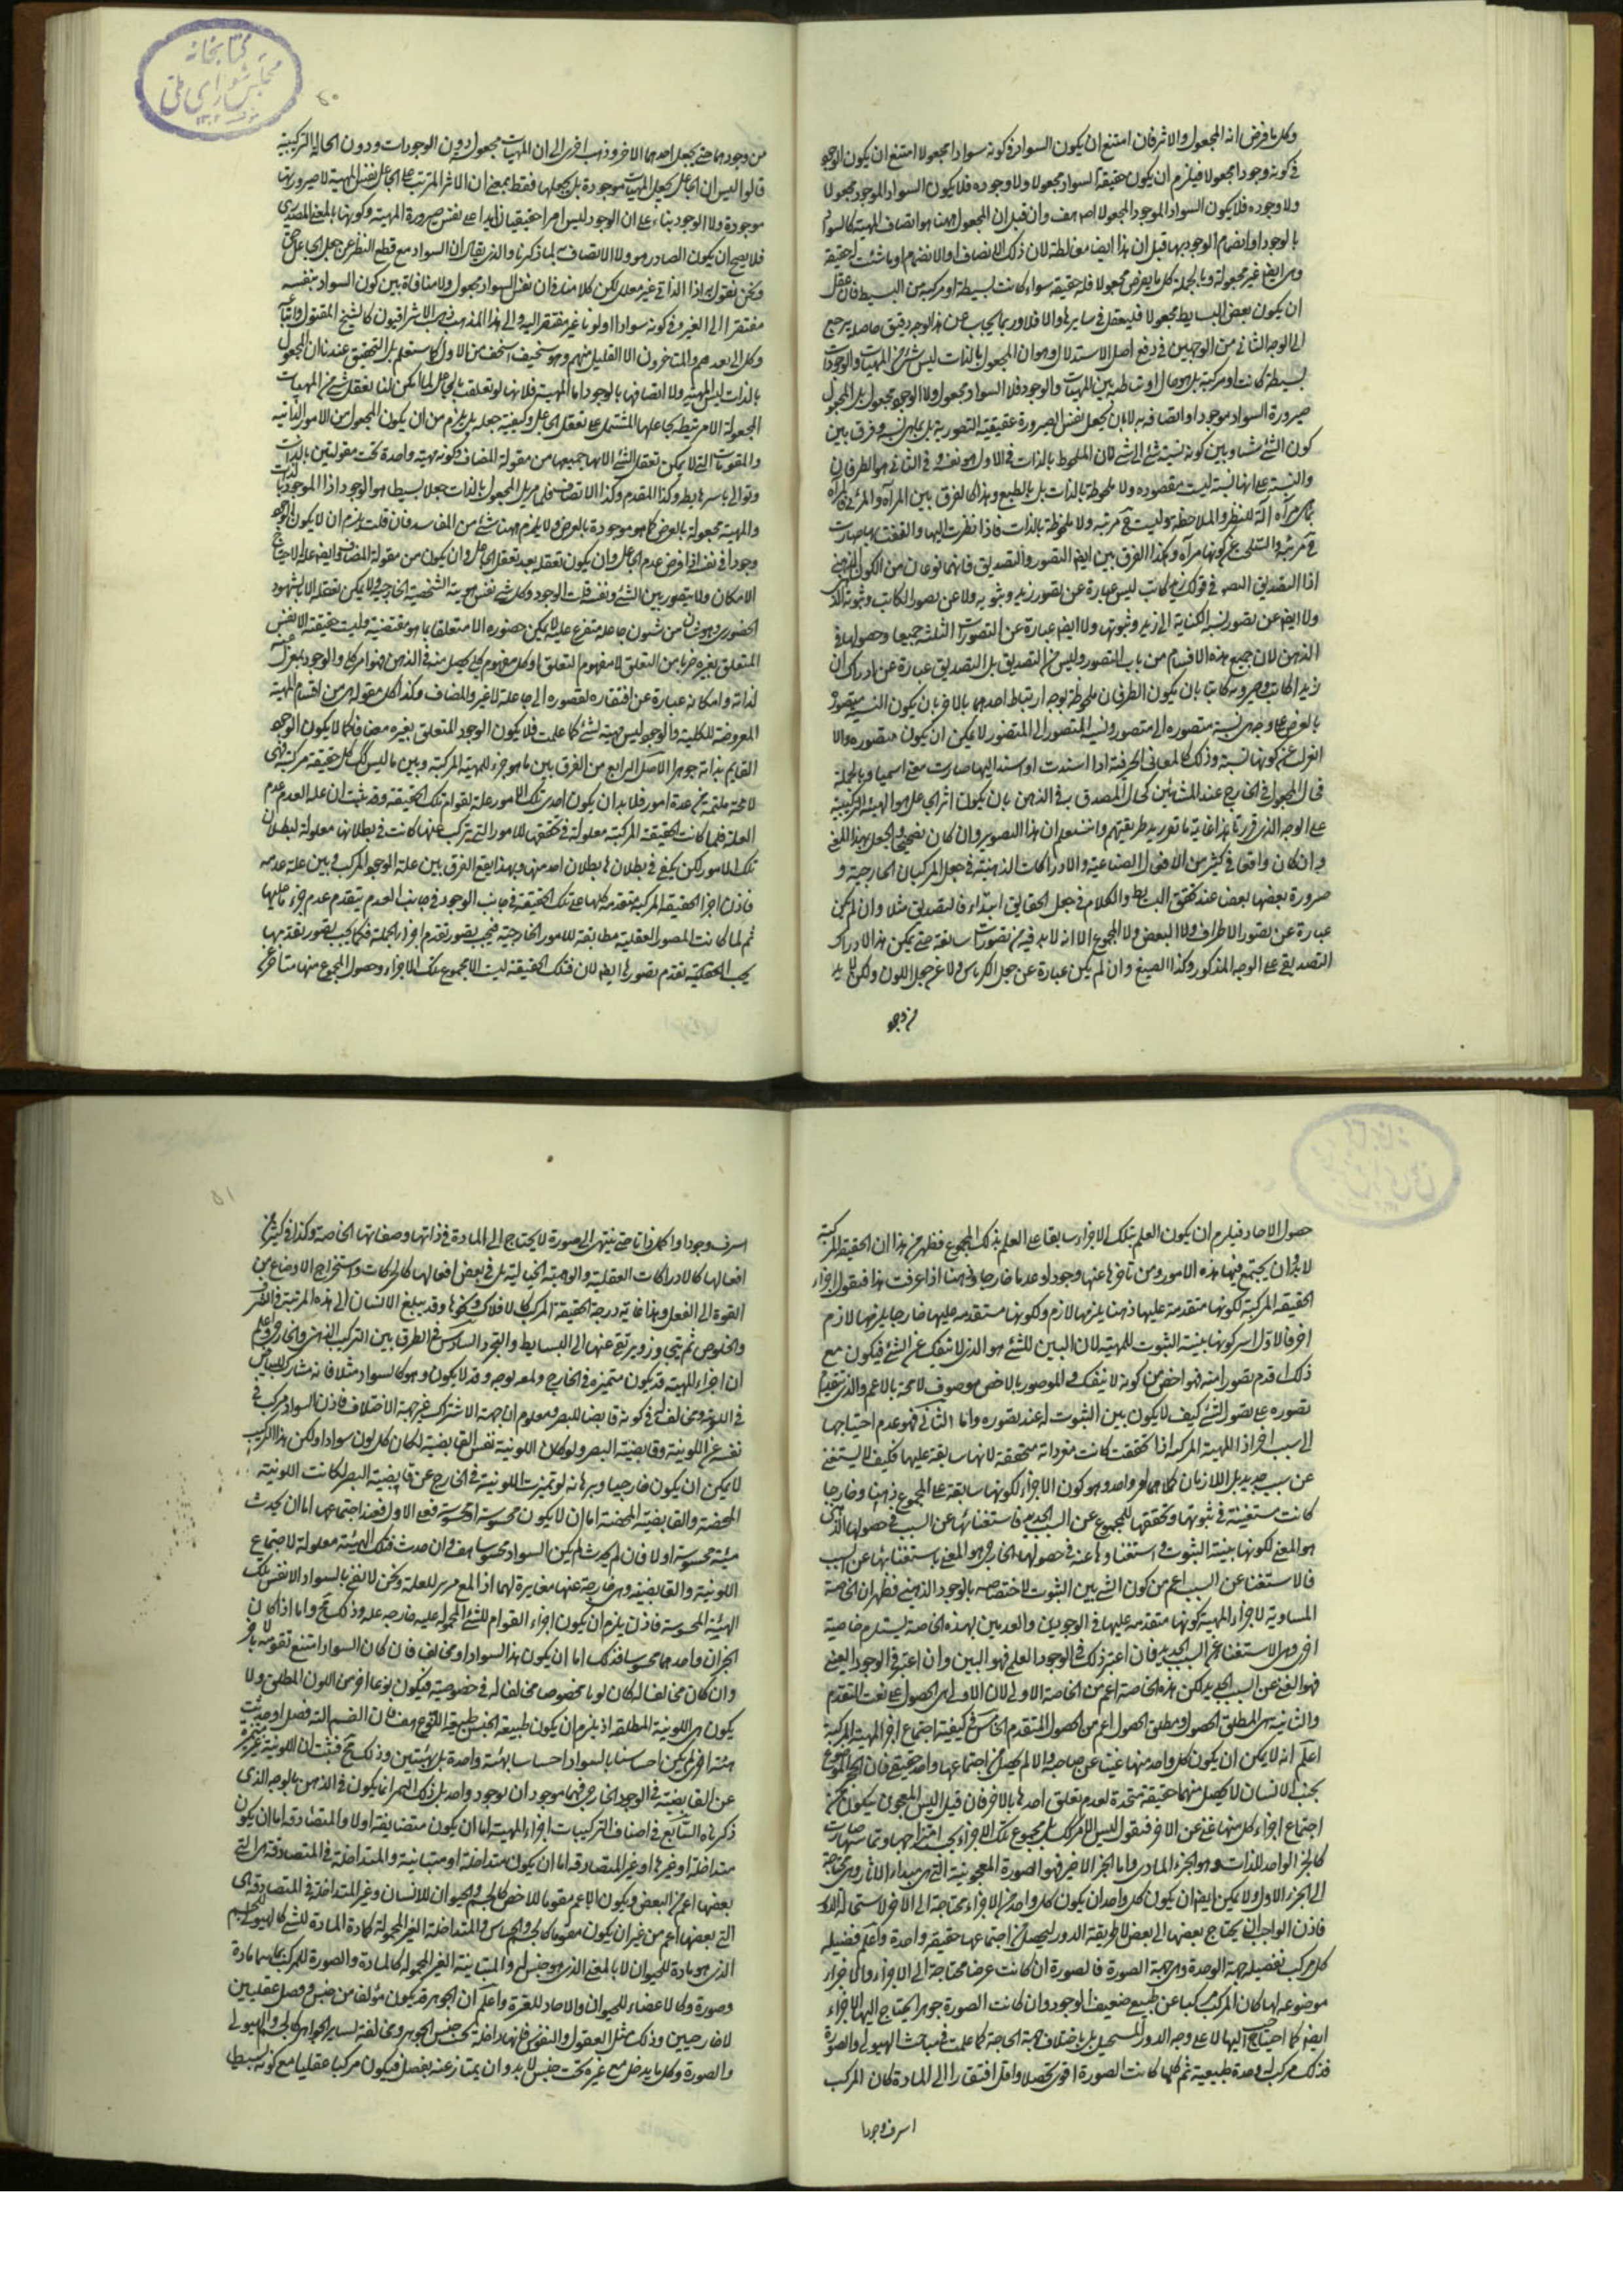 وكل ما فرض انه المجعول والاثر فان امتنع ان يكون السواد في كونه سوادا مجعولا امتنع ان يكون الوجود
في كونه وجودا مجعولا فيلزم ان يكون حقيقة السواد مجعولا ولا وجوده فلا يكون السواد الموجود مجعولا
ولا وجوده فلا يكون السواد الموجود المجعول هف وان قيل ان المجعول هنا هو اتصاف المهية كالسواد
بالوجود او انضمام الوجود بها قيل ان هذا ايضا مغالطة لان ذلك الاتصاف او الانضمام او ما شئت له حقيقة
وهي ايضا غير مجعولة وبالجملة كل ما يفرض مجعولا فله حقيقة سواء كانت بسيطة او مركبة من البسيط فان عقل
ان يكون بعض البسايط مجعولا فليعقل في سايرها والا فلا وربما يجاب عن هذا بوجه دقيق حاصله يرجع
الى الوجه الثاني من الوجهين في دفع اصل الاستدلال وهو ان المجعول بالذات ليس شئ من المهيات والوجودات
بسيطة كانت او مركبة بل هو حال ارتباطه بين المهيات والوجود فلا السواد مجعول ولا الوجود مجعول بل المجعول
صيرورة السواد موجودا او اتصافه به لا بان يجعل نفس الصيرورة حقيقية التصورية بل بما هي نسبة وفرق بين
كون الشئ شيئا وبين كونه نسبة شئ الى شئ كان الملحوظ بالذات في الاول هو نفسه وفي الثاني هو الطرفان
والنسبة على انها نسبة ليست مقصوده ولا ملحوظة بالذات بل بالطبع وهذا كالفرق بين المرآة والمرئي فالمرآة
بما هي مرآة آلة للنظر والملاحظة وليست في مرتبة ولا ملحوظة بالذات فاذا نظرت اليها والتفت بها صارت
في مرتبة وانسلخ عن كونها مرآة وهكذا الفرق بين ايضا التصور والتصديق فانهما نوعان من الكون الذهني
اذا التصديق في قولك زيد كاتب ليس عبارة عن تصور زيد وثبوته ولا عن تصور الكاتب وثبوته له
ولا ايضا عن تصور نسبة الكتابة الى زيد وثبوتها ولا ايضا عبارة عن التصورات الثلثة جميعا وحصولها في
الذهن لان جميع هذه الاقسام من باب التصور وليس من التصديق بل التصديق عبارة عن ادراك ان
زيد الكاتب وصيرورته كاتبا بان يكون الطرفان ملحوظة بوجه ارتباط احدهما بالاخر بان يكون النسبة متصورة
بالعرض على وجه هي نسبة متصورة الى متصور ونسبة المتصور الى المتصور لا يمكن ان يكون متصوره والا
انعزلت عن كونها نسبة وذلك كالمعاني الحرفية اذا اسندت او اسند اليها صارت معنى اسميا وبالجملة
فحال المجعول في الخارج عند المشائين كحال المصدق به في الذهن بان يكون اثر الجاعل هو الهيئة التركيبية
على الوجه الذي قررنا هذا غاية ما تورد طريقتهم وانت تعلم ان هذا التصوير وان كان يصحح الجعل بهذا المعنى
وان كان واقعا في كثير من الافعال الصناعية والادراكات الذهنية في جعل المركبات الخارجية و
صيرورة بعضها بعض عند تحقق البسايط والكلام في جعل الحقايق ابتداء فالتصديق مثلا وان لم يكن
عبارة عن تصور الاطراف ولا البعض ولا المجموع الا انه لابد فيه من تصورات سابقة حتى يمكن هذا الادراك
التصديقي على الوجه المذكور وكذا الصبغ وان لم يكن عبارة عن جعل الكرباس ولا عن جعل اللون ولكن لابد
من وجود
من وجودهما حتى يجعل احدهما الاخر وذهب اخرى الى ان المهيات مجعول دون الوجودات ودون الحالة التركيبية
قالوا ليس ان الجاعل يجعل المهيات موجودة بل يجعلها فقط بمعنى ان الاثر المترتب على الجاعل نفس المهية لا صيرورتها
موجودة ولا الوجود بناء على ان الوجود ليس امرا حقيقيا زايدا على نفس صيرورة المهية وكونها بالمعنى المصدري
فلا يصح ان يكون الصادر هو ولا الاتصاف به لما ذكرنا والذي يقال ان السواد مع قطع النظر عن جعل الجاعل سواد
ونحن نقول هذا الذاتي غير معلل لكن كلامنا فان نفس السواد مجعول ولا منافاة بين كون السواد بنفسه
مفتقرا الى الغير وفي كونه سوادا او لونا غير مفتقر اليه والى هذا المذهب ذهب الاشراقيون كالشيخ المقتول واتباعه
وكل الى بعدهم والمتاخرون الا القليل منهم وهو سخيف اسخف من الاول كما ستعلم بل التحقيق عندنا ان المجعول
بالذات ليس المهية ولا اتصافها بالوجود اما المهية فلانها لو تعلقت بالجاعل لما امكن لنا تعقل شئ من المهيات
المجعولة الا مرتبطة بجاعلها المشتمل على تعقل الجاعل وكيفية جعله بل يلزم من ان يكون المجعول من الامور الذاتية
والمقومات التي لا يمكن تعقل الشئ الا بها جميعها من مقولة المضاف وكونه مهية واحدة تحت مقولتين بالذات
وتوالي باسرها بط وكذا المقدم وكذا الاتصاف فلم يزل المجعول بالذات جعلا بسيطا هو الوجود اذا الموجود بالذات
والمهية مجعولة بالعرض كما هو موجودة بالعرض ولا يلزم ههنا شئ من المفاسد فان قلت يلزم ان لا يكون الوجود
وجودا في نفسه اذا فرض عدم الجاعل وان يكون تعقله بعد تعقل الجاعل وان يكون من مقولة المضاف وايضا علة الاحتياج
الامكان ولا يتصور بين الشئ ونفسه قلت الوجود وكل شئ نفس هوية الشخصية الخارجية ولا يمكن تعقله الا بالشهود
الحضوري وهو شان من شئون جاعله متفرع عليه لا يمكن حضوره الا متعلقا بما هو مقتضيه وليست حقيقة الا نفس
المتعلق بغيره ضربا من التعلق لا مفهوم التعلق او كل مفهوم كلي يحصل منه في الذهن فهو امر كلي والوجود بمعزل عنه
لذاته وامكانه عبارة عن افتقاره لقصوره الى جاعله لا غير والمضاف وكذا كل مقوله هي من اقسام المهية
المعروضة للكلية والوجود ليس مهية لشئ كما علمت فلا يكون الوجود المتعلق بغيره مضافا كما لا يكون الوجود
القايم بذاته جوهرا الاصل الرابع من الفرق بين ما هو جزء للمهية المركبة وبين ما ليس كك كل حقيقة مركبة فهي
لا محة ملتئمة من عدة امور فلا بد ان يكون احدى تلك الامور علة لقوام تلك الحقيقة وقد ثبت ان علة العدم عدم
العلة فلما كانت الحقيقة المركبة معلولة في تحققها للامور التي تركب عنها كانت في بطلانها معلولة لبطلان
تلك الامور لكن يكفي في بطلانها بطلان احد منها وبهذا يقع الفرق بين علة الوجود المركب وبين علة عدمه
فاذن اجزاء الحقيقة المركبة متقدمة كلها على تلك الحقيقة في جانب الوجود وفي جانب العدم يتقدم عدم جزء ما عليها
ثم لما كانت الصور العقلية مطابقة للامور الخارجية فيجب تصور تقدم اجزاء الجملة فكما يجب تصور تقدمها
بحسب الحقيقة تقدم تصورها ايضا لان تلك الحقيقة ليست الا مجموع تلك الاجزاء وحصول المجموع منها متاخر عن
حصول الاحاد فيلزم ان يكون العلم بتلك الاجزاء سابقا على العلم بذلك المجموع فظهر من هذا ان الحقيقة المركبة
لابد وان يجتمع فيها هذه الامور ومن تاخرها عنها وجودا وعدما خارجا وذهنا اذا عرفت هذا فنقول اجزاء
الحقيقة المركبة لكونها متقدمة عليها ذهنا يلزمها لازم ولكونها متقدمه عليها خارجا يلزمها لازم
اخر فالاول هي كونها بينة الثبوت للمهية لان البين للشئ هو الذي لا ينفك عن الشئ فيكون مع
ذلك اقدم تصورا منه فهو اخص من كونه لا ينفك والموصوف بالاخص موصوف لا محة بالاعم والذي يتقدم
تصوره على تصور الشئ كيف لا يكون بين الثبوت له عند تصوره واما الثاني فهو عدم احتياجها
الى سبب اخر اذا المهية المركبة اذا تحققت كانت مفرداته متحققة لانها سابقة عليها فكيف لا يستغنى
عن سبب جديد بل اللازمان كلاهما امر واحد وهو كون الاجزاء لكونها سابقة على المجموع ذهنا وخارجا
كانت مستغنية في ثبوتها وتحققها للمجموع عن السبب الجديد فاستغنائها عن السبب في حصولها الذهني
هو المعنى لكونها بينة الثبوت واستغناؤها عنه في حصولها الخارجي هو المعنى باستغنائها عن السبب
فالاستغنا عن السبب اعم من كون الشئ بين الثبوت لاختصاصه بالوجود الذهني فظهر ان الخاصة
المساوية لاجزاء المهية كونها متقدمة عليها في الوجودين والعدمين لهذه الخاصة يستلزم خاصية
اخرى وهي الاستغناء عن السبب الجديد فان اعتبر ذلك في الوجود العلمي فهو البين وان اعتبر في الوجود العيني
فهو الغني عن السبب الجديد لكن هذه الخاصة اعم من الخاصة الاولى لان الاولى هي الحصول على نعت التقدم
والثانية هي المطلق الحصول ومطلق الحصول اعم من الحصول المتقدم الخامس في كيفية اجتماع اجزاء المهية المركبة
اعلم انه لا يمكن ان يكون كل واحد منها غنيا عن صاحبه والا لم يحصل من اجتماعها واحد حقيقي فان الحجر الموضوع
بجنب الانسان لا يحصل منهما حقيقة متحدة لعدم تعلق احدها بالاخر فان قيل اليس المعجون يتكون من
اجتماع اجزاء كل منها غني عن الاخر فنقول ليس الامر كك بل مجموع تلك الاجزاء بحسب امتزاجها وتماسها صارت
كالجزء الواحد للذات وهو الجزء المادي واما الجزء الاخير فهو الصورة المعجونية التي هي مبداء الاثار وهي محتاجة
الى الجزء الاول ولا يمكن ايضا ان يكون كل واحد ان يكون كل واحد من الاجزاء محتاجة الى الاخر لاستحالة الدور
فاذن الواجب ان يحتاج بعضها الى بعض لا بطريقة الدور ليحصل من اجتماعها حقيقة واحدة واعلم فضيلة
كل مركب بفضيلة جهة الوحدة وهي جهة الصورة فالصورة ان كانت عرضا محتاجة الى الاجزاء والاجزاء
موضوعة لها كان المركب مركبا عن طبيعي ضعيف الوجود وان كانت الصورة جوهرا يحتاج اليها الاجزاء
ايضا كما احتياجت اليها لا على وجه الدور المستحيل بل باختلاف جهة الحاجة كما علمت في مباحث الهيولى والصورة
فذلك مركب له وحدة طبيعية ثم كلما كانت الصورة اقوى تحصلا واقل افتقارا الى المادة كان المركب
اشرف وجودا
اشرف وجودا واكمل ذاتا حتى ينتهي الى صورة لا يحتاج الى المادة في ذاتها وصفاتها الخاصة وكذا في كثير من
افعالها كالادراكات العقلية والوهمية الخيالية بل في بعض افعالها كالحركات واستخراج الاوضاع من
القوة الى الفعل وهذا غاية درجة الحقيقة المركبة كالافلاك ونحوها وقد يبلغ الانسان الى هذه المرتبة في الشرف
والخلوص ثم يتجاوز ويرتقي عنها الى البسايط والتجرد السادس في الفرق بين التركيب الذهني والخارجي واعلم
ان اجزاء المهية قد يكون متميزة في الخارج ولمه لوجه وقد لا يكون وهو كالسواد مثلا فانه مشارك للبياض
في اللونية ومخالف في كونه قابضا للبصر ومعلوم ان جهة الاشتراك غير جهة الاختلاف فاذن السواد مركب في
نفسه عن اللونية وقابضية البصر ولو كان اللونية نفس القابضية لكان كل لون سوادا ولكن هذا التركيب
لا يمكن ان يكون خارجيا وبرهانه لو تميزت اللونية في الخارج عن قابضية البصر لكانت اللونية
المحضة والقابضية المحضة اما ان لا يكون محسوسة او محسوسة فعلى الاول فعند اجتماعها اما ان يحدث
هيئة محسوسة اولا فان لم يحدث لم يكن السواد محسوسا هف وان حدثت فتلك الهيئة معلولة لاجتماع
اللونية والقابضية وهي خارجة عنها مغايرة لهما اذ المعلول مغاير للعلة ونحن لا نعني بالسواد الا نفس تلك
الهيئة المحسوسة فاذن يلزم ان يكون اجزاء القوام للشئ المحمولة عليه خارجة عنه وذلك مح واما اذا كان
الجزان واحدهما محسوسا فذلك اما ان يكون هذا السواد او مخالف فان كان السواد امتنع تقومه بالاخر
وان كان مخالفا له كان لونا مخصوصا مخالفا له في خصوصية فيكون نوعا اخر من اللون المطلق ولا
يكون هي اللونية المطلقة اذ يلزم ان يكون طبيعة الجنس طبيعة النوع هف فان انضم اليه فصل او حدثت
هيئة اخرى لم يكن احساسنا بالسواد احساسا بهيئة واحدة بل بهيئتين وذلك مح فثبت ان اللونية غير متميزة
عن القابضية في الوجود الخارجي فهما موجودان لوجود واحد بل ذلك التميز انما يكون في الذهن بالوجه الذي
ذكرناه السابع في اصناف التركيبات اجزاء المهية اما ان يكون متصادقة اولا والمتصادقة اما ان يكون
متداخلة او غيرها وغير المتصادقة اما ان يكون متداخلة او متباينة والمتداخلة في المتصادقة هي التي
بعضها اعم من البعض ويكون الاعم مقوما للاخص كالجسم والحيوان للانسان وغير المتداخلة في المتصادقة هي
التي بعضها اعم من غير ان يكون مقوما كالحي والحساس والمتداخلة الغير المحمولة كمادة المادة للشئ كالهيولى للجسم
الذي هو مادة للحيوان لا بالمعنى الذي هو جنس له والمتباينة الغير المحمولة كالمادة والصورة للمركب بما هما مادة
وصورة وكالاعضاء للحيوان والاحاد للعشرة واعلم ان الجوهر قد يكون مؤلفا من جنس وفصل عقليين
لا خارجيين وذلك مثل العقول والنفوس فانها داخلة تحت جنس الجوهر ومخالفة لساير الجواهر كالجسم والهيولى
والصورة وكل ما يدخل مع غيره تحت جنس لابد وان يمتاز عنه بفصل فيكون مركبا عقليا مع كونه بسيطا